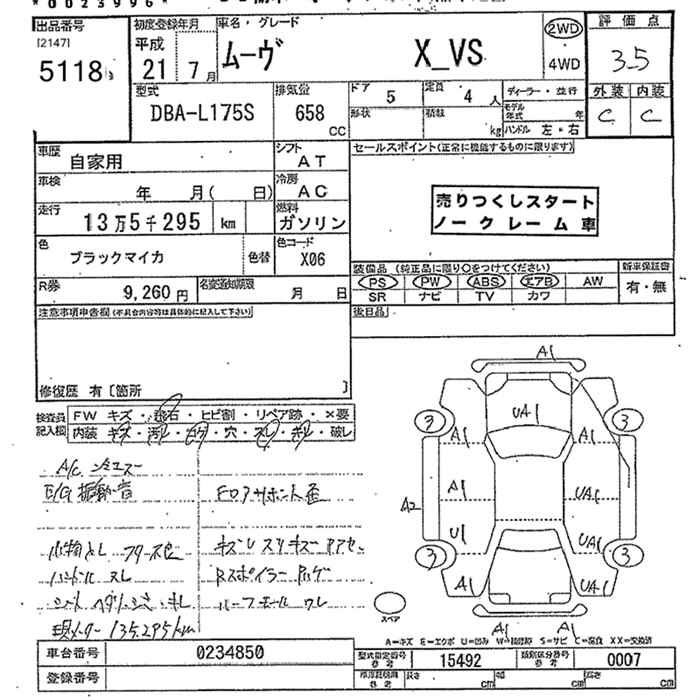 *0023996*
出品番号
[2147]
5118
初度登録年月
平成
21年 7月
車名・グレード
ムーヴ X_VS
2WD
4WD
評価点
3.5
外装 内装
C C
型式
DBA-L175S
排気量
658
CC
ドア 5
定員 4 人
形状
積載 kg
ディーラー・並行
モデル年式 年
ハンドル 左・右
車歴 自家用
シフト AT
車検 年 月( 日)
冷房 AC
走行 13万5千295 km
燃料 ガソリン
色 ブラックマイカ 色替
色コード X06
R券 9,260円
名変通知期限 月 日
セールスポイント(正常に機能するものに限ります)
売りつくしスタート
ノークレーム車
装備品 (純正品に限り○をつけてください)
PS PW ABS エアB AW
SR ナビ TV カワ
新車保証書
有・無
後日品
注意事項申告欄(不具合内容等は具体的に記入して下さい)
修復歴 有〔箇所 〕
検査員記入欄
FW キズ・飛石・ヒビ割・リペア跡・×要
内装 キズ・汚レ・コゲ・穴・スレ・キレ・破レ
E/G 振動音
ハンドル スレ
現メーター 135,295km
A1
UA1
3
3
A1
A1
A1
UA1
A2
U1
UA1
3
3
A1
UA1
A1
A1
スペア
A=キズ E=エクボ U=凹み W=補修跡 S=サビ C=腐食 XX=交換済
車台番号 0234850
登録番号
型式指定番号 参考 15492
類別区分番号 参考 0007
長さ cm
幅 cm
高さ cm